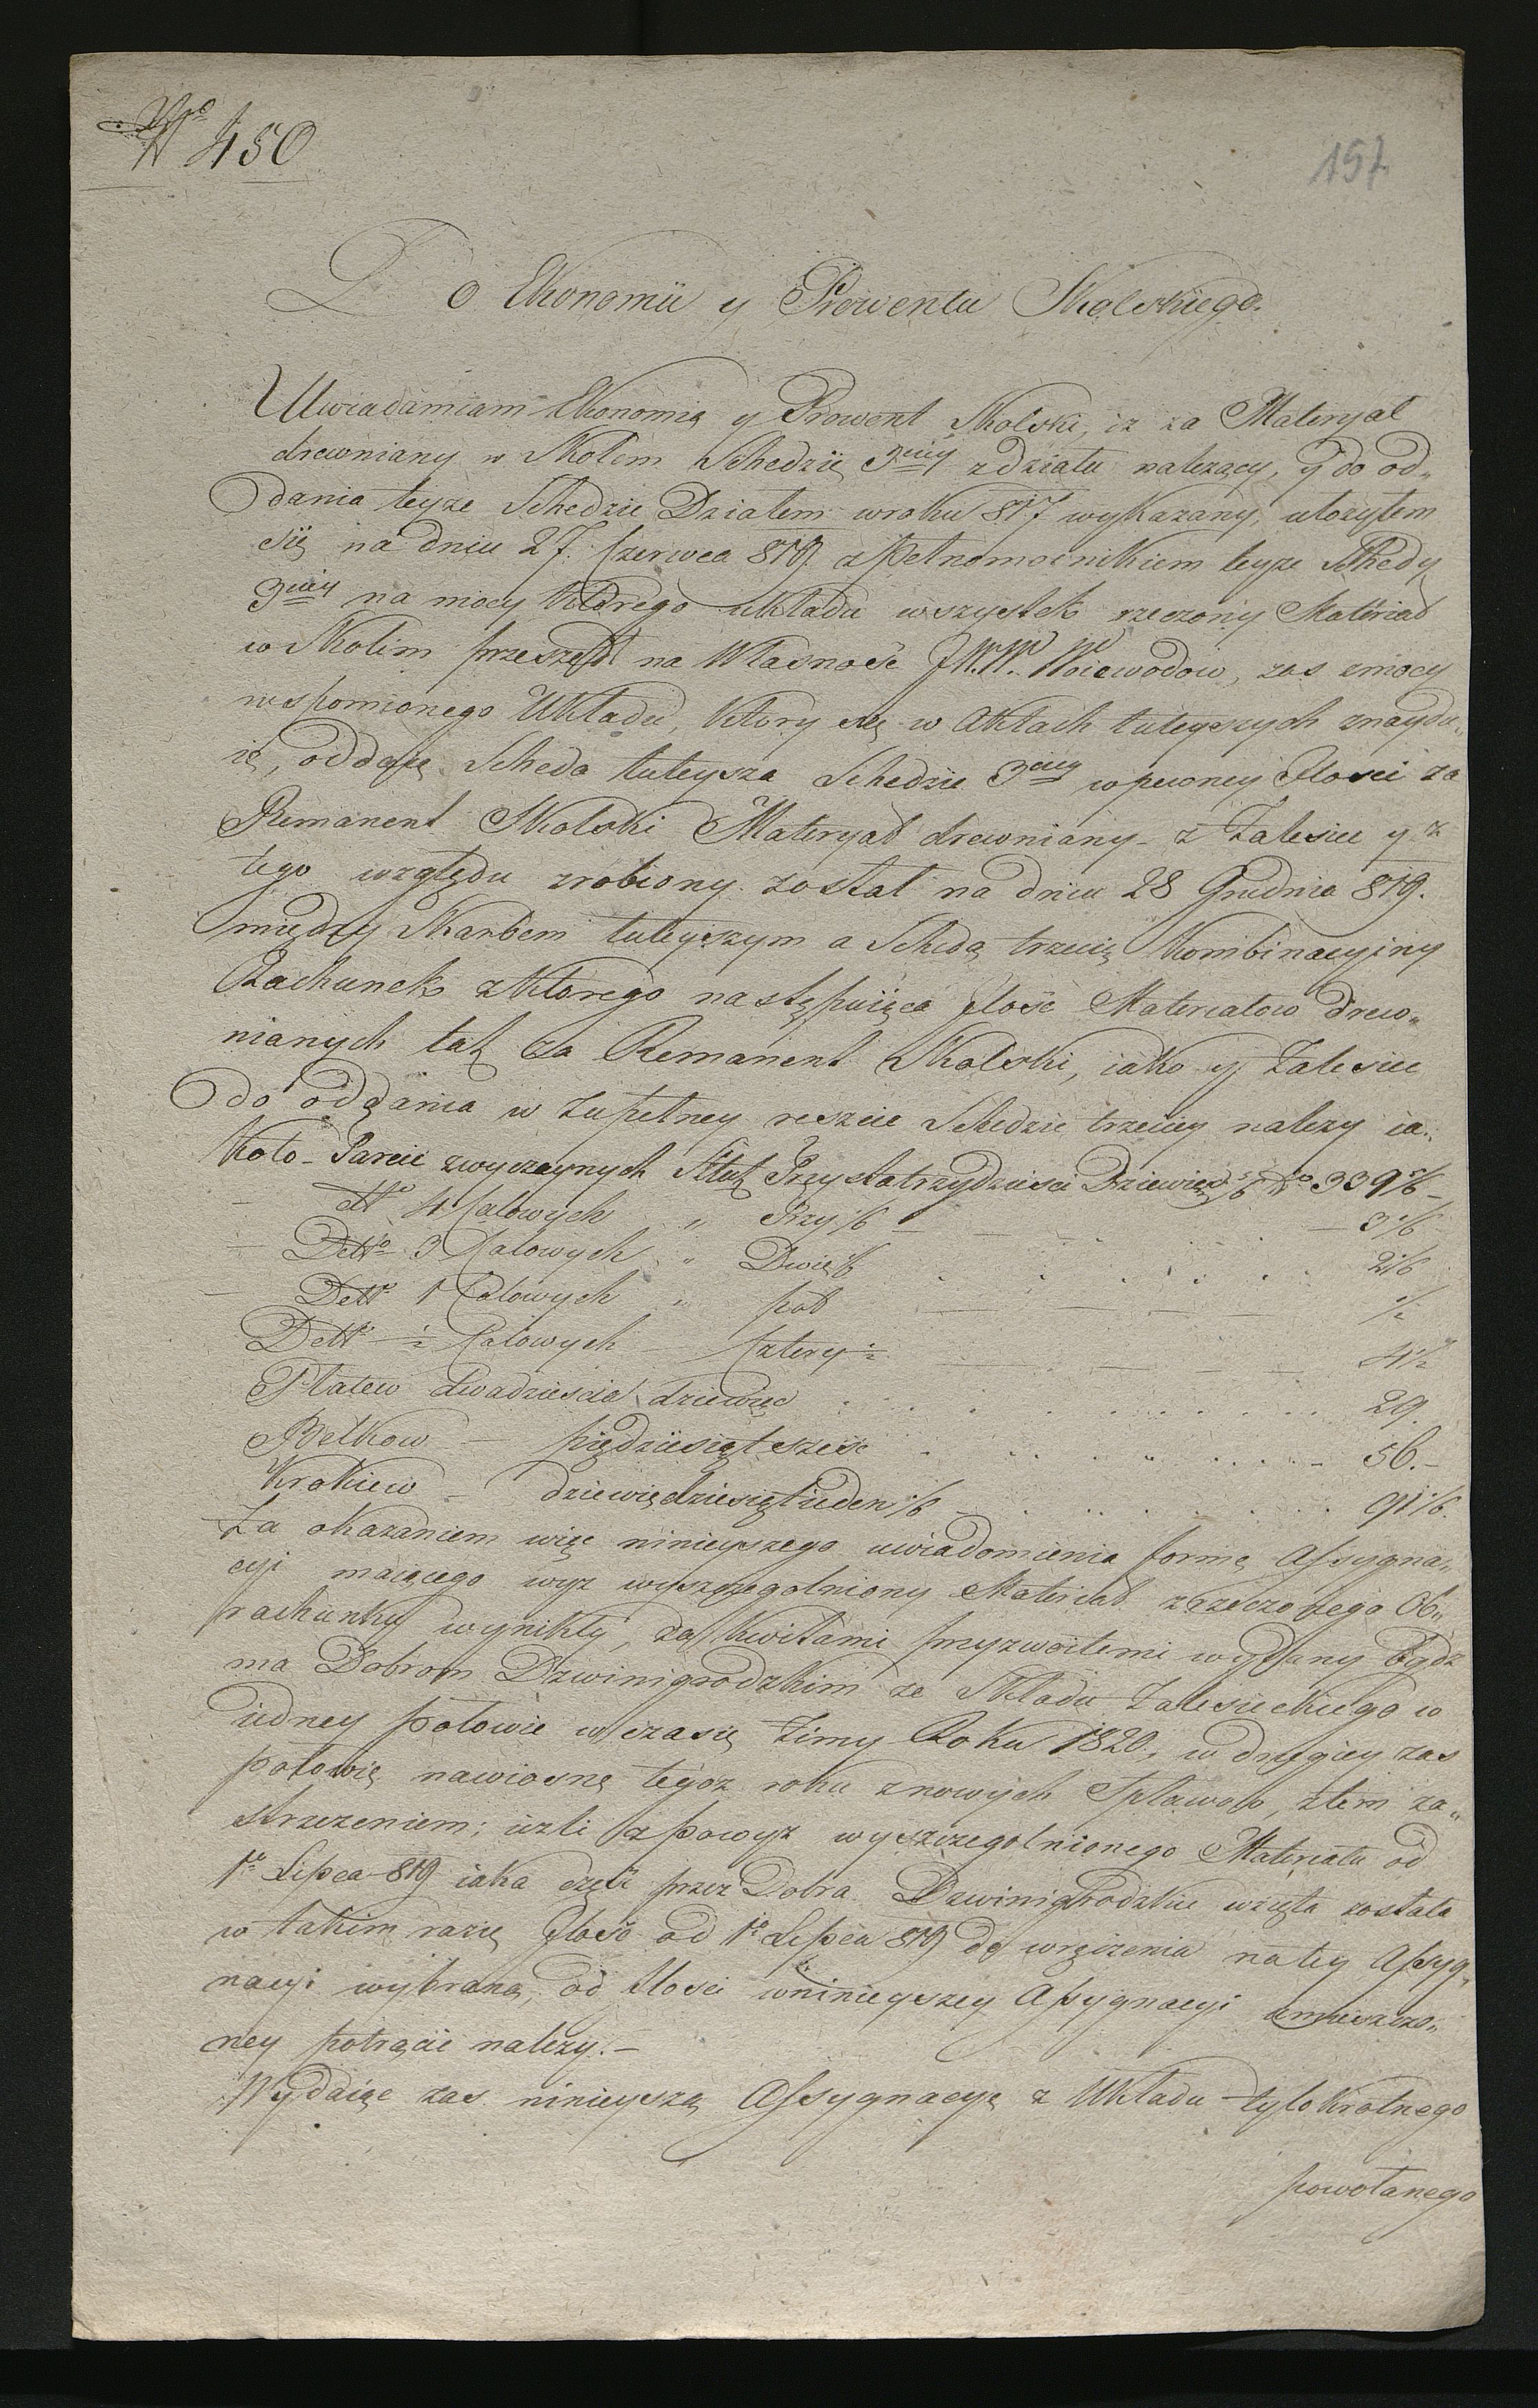 Nro 450
157
Do Ekonomii y Prowentu Skolskiego.
Uwiadamiam Ekonomią y Prowent Skolski, iz za Materyał
drewniany w Skolim Schedzie 3ciey z działu nalezący, y do od„
dania teyze Schedzie Działem w roku 817 wykazany, ułozyłem
się na dniu 27. Czerwca 819. z Pełnomocnikiem teyze Schedy
3ciey na mocy którego układu wszystek rzeczony Materiał
w Skolim przeszedł na Własność JW.W. Woiewodow, zas z mocy
wspomionego Układu, ktory się w Aktach tuteyszych znaydu„
ie, oddaie Scheda tuteysza Schedzie 3ciey w pewney Ilosci za
Remanent Skolski Materyał drewniany z Zalesiec y z
tego względu zrobiony został na dniu 28 Grudnia 819.
między Skarbem tuteyszym a Schedą trzecią Kombinacyiny
Rachunek z ktorego następuiąca Ilość Materiałow drew„
nianych tak za Remanent Skolski, iako y Zalesiec
do oddania w Zupełney reszcie Schedzie trzeciey nalezy ia„
koto - Tarcic zwyczaynych Sztuk Trzystatrzydziesci Dziewięć 5/6 No 339 5/6 -
- Dtto 4 Calowych „ Trzy 1/6 - - 3 1/6
- Detto 3 Calowych „ Dwie 1/6 . . . . 2 1/6
- Detto 1 Calowych „ poł - - - 1/2
Detto 1/2 Calowych - Cztery 1/2 - - - 4 1/2
Płatew dwadziescia dziewięć . . . . . . 29.
Belkow - pięedziesiąt szesc . . . . . . 56.-
Krokiew - dziewięedziesiąt ieden 1/6 . . . . . 91 1/6.
Za okazaniem więc ninieyszego uwiadomienia formę Assygna„
cyi maiącego wyz wyszczegolniony Materiał z rzeczonego Ob„
rachunku wynikły, za kwitami przyzwoitemi wydany bydz
ma Dobrom Dzwinigrodzkim ze Składu Zalesieckiego w
iedney połowie w czasie Zimy Roku 1820, w drugiey zas
połowie na wiosnę tegoz roku z nowych Spławow, z tem za„
strzezeniem; iezli z powyz wyszczegolnionego Materiału od
1o Lipca 819 iaka częsc przez Dobra Dzwinigrodzkie wzięta została
w takim razie Ilość od 1o Lipca 819 do wręczenia na tey Assyg„
nacyi wybrana, od Ilosci w ninieyszey Assygnacyi umieszczo„
ney potrącić nalezy.-
Wydaiąc zas ninieyszą Assygnacyę z Układu tylokrotnego
powołanego